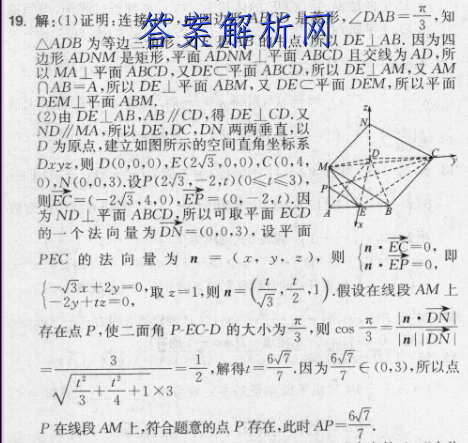 19. 解:(1)证明:连接 ∠DAB=π/3,知
△ADB 为等边三 的 点,所以 DE⊥AB. 因为四
边形 ADNM 是矩形,平面 ADNM⊥平面 ABCD 且交线为 AD,所
以 MA⊥平面 ABCD,又DE⊂平面 ABCD,所以 DE⊥AM,又 AM
∩AB=A,所以 DE⊥平面 ABM,又 DE⊂平面 DEM,所以平面
DEM⊥平面 ABM.
(2)由 DE⊥AB,AB∥CD,得 DE⊥CD.又
ND∥MA,所以 DE,DC,DN 两两垂直,以
D 为原点,建立如图所示的空间直角坐标系
Dxyz,则 D(0,0,0),E(2√3,0,0),C(0,4,
0),N(0,0,3).设P(2√3,-2,t)(0≤t≤3),
则EC=(-2√3,4,0),EP=(0,-2,t).因
为 ND⊥平面 ABCD,所以可取平面 ECD
的一个法向量为DN=(0,0,3),设平面
PEC 的法向量为 n=(x,y,z),则 {n·EC=0, n·EP=0, 即
{-√3x+2y=0, -2y+tz=0, 取 z=1,则 n=(t/√3,t/2,1).假设在线段 AM 上
存在点 P,使二面角 P-EC-D 的大小为π/3,则 cos π/3=|n·DN|/|n||DN|
=3/√(t²/3+t²/4+1)×3=1/2,解得t=6√7/7,因为6√7/7∈(0,3),所以点
P 在线段 AM 上,符合题意的点 P 存在,此时 AP=6√7/7.
答案解析网
z
N
D
C
y
M
P
A
E
B
x